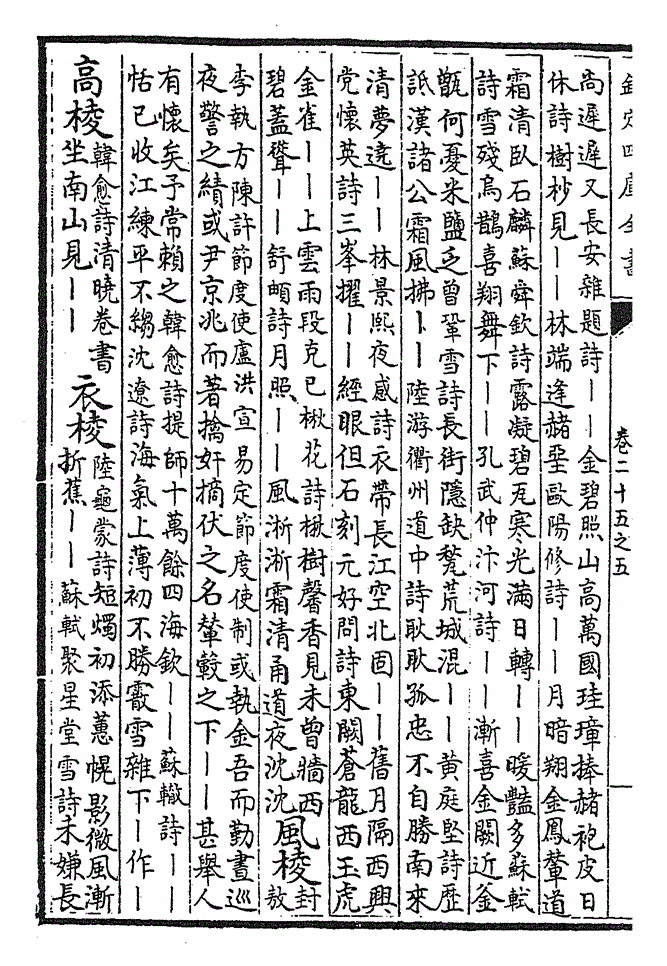 欽定四庫全書
卷二十五之五
尚遲遲又長安雜題詩丨丨金碧照山高萬國珪璋捧赭袍皮日
休詩樹杪見丨丨林端逢赭堊歐陽修詩丨丨月暗翔金鳳輦道
霜清臥石麟蘇舜欽詩露凝碧瓦寒光滿日轉丨丨暖豔多蘇軾
詩雪殘烏鵲喜翔舞下丨丨孔武仲汴河詩丨丨漸喜金闕近釜
甑何憂米鹽乏曾鞏雪詩長街隱缺甃荒城混丨丨黄庭堅詩歷
詆漢諸公霜風拂丨丨陸游衢州道中詩耿耿孤忠不自勝南來
清夢遶丨丨林景熙夜感詩衣帶長江空北固丨丨舊月隔西興
党懷英詩三峯擢丨丨經眼但石刻元好問詩東闕蒼龍西玉虎
金雀丨丨上雲雨段克己楸花詩楸樹馨香見未曾牆西
碧蓋聳丨丨舒頔詩月照丨丨風淅淅霜清甬道夜沈沈
風棱
封
敖
李執方陳許節度使盧洪宣易定節度使制或執金吾而勤晝巡
夜警之績或尹京兆而著擒奸摘伏之名輦轂之下丨丨甚舉人
有懷矣予常賴之韓愈詩提師十萬餘四海欽丨丨蘇轍詩丨丨
恬已收江練平不縐沈遼詩海氣上薄初不勝霰雪雜下丨作丨
高棱
韓愈詩清曉卷書
坐南山見丨丨
衣棱
陸龜蒙詩短燭初添蕙幌影微風漸
折蕉丨丨蘇軾聚星堂雪詩未嫌長